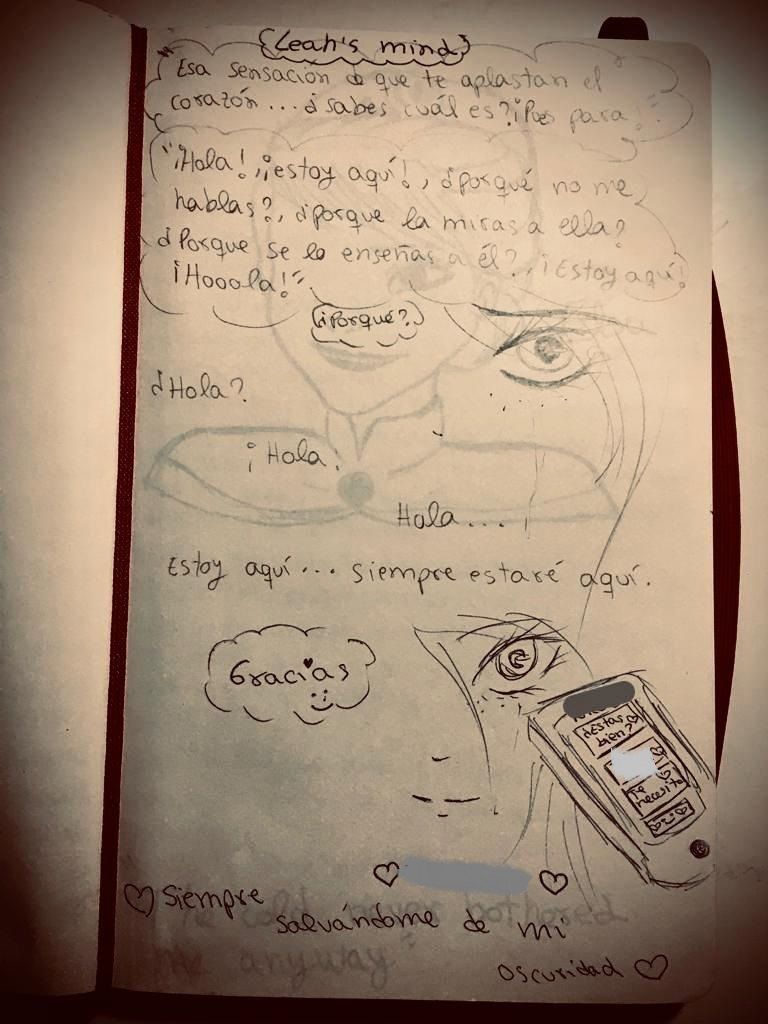 {Leah's mind}
"Esa sensación de que te aplastan el
corazón... ¿sabes cuál es? ¡Pues para!"
"¡Hola!, ¡¡estoy aquí!, ¿porqué no me
hablas?, ¿porque la miras a ella?
¿Porque se lo enseñas a él?, ¡Estoy aquí!
¡Hooola!"
¡¿Porqué?
¿Hola?
¡Hola!
Hola...
Estoy aquí... siempre estaré aquí.
Gracias
¿Estás
bien?
Te
necesito
Siempre
salvándome de mi
oscuridad
The cold never bothered
me anyway"